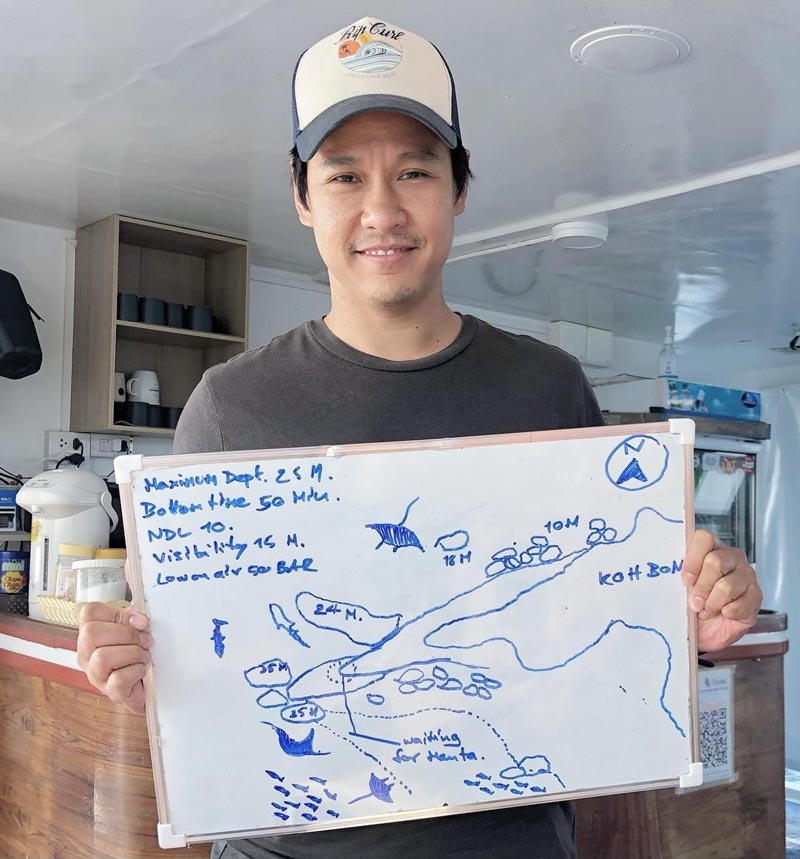 Rip Curl
N
Maximum Dept. 25 M.
Bottom time 50 Min.
NDL 10.
Visibility 15 M.
Low on air 50 BAR
10M
18M
KOH BON
24 M.
35M
25M
waiting
for Manta.